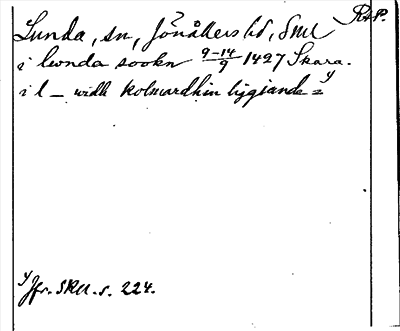 RAP.
Lunda, sn, Jönåkers hd, Sml
i lwnda sookn 9-14/9 1427 Skara.
i l – widh kolmardhin liggiande =y
y Jfr. SRU. s. 224.